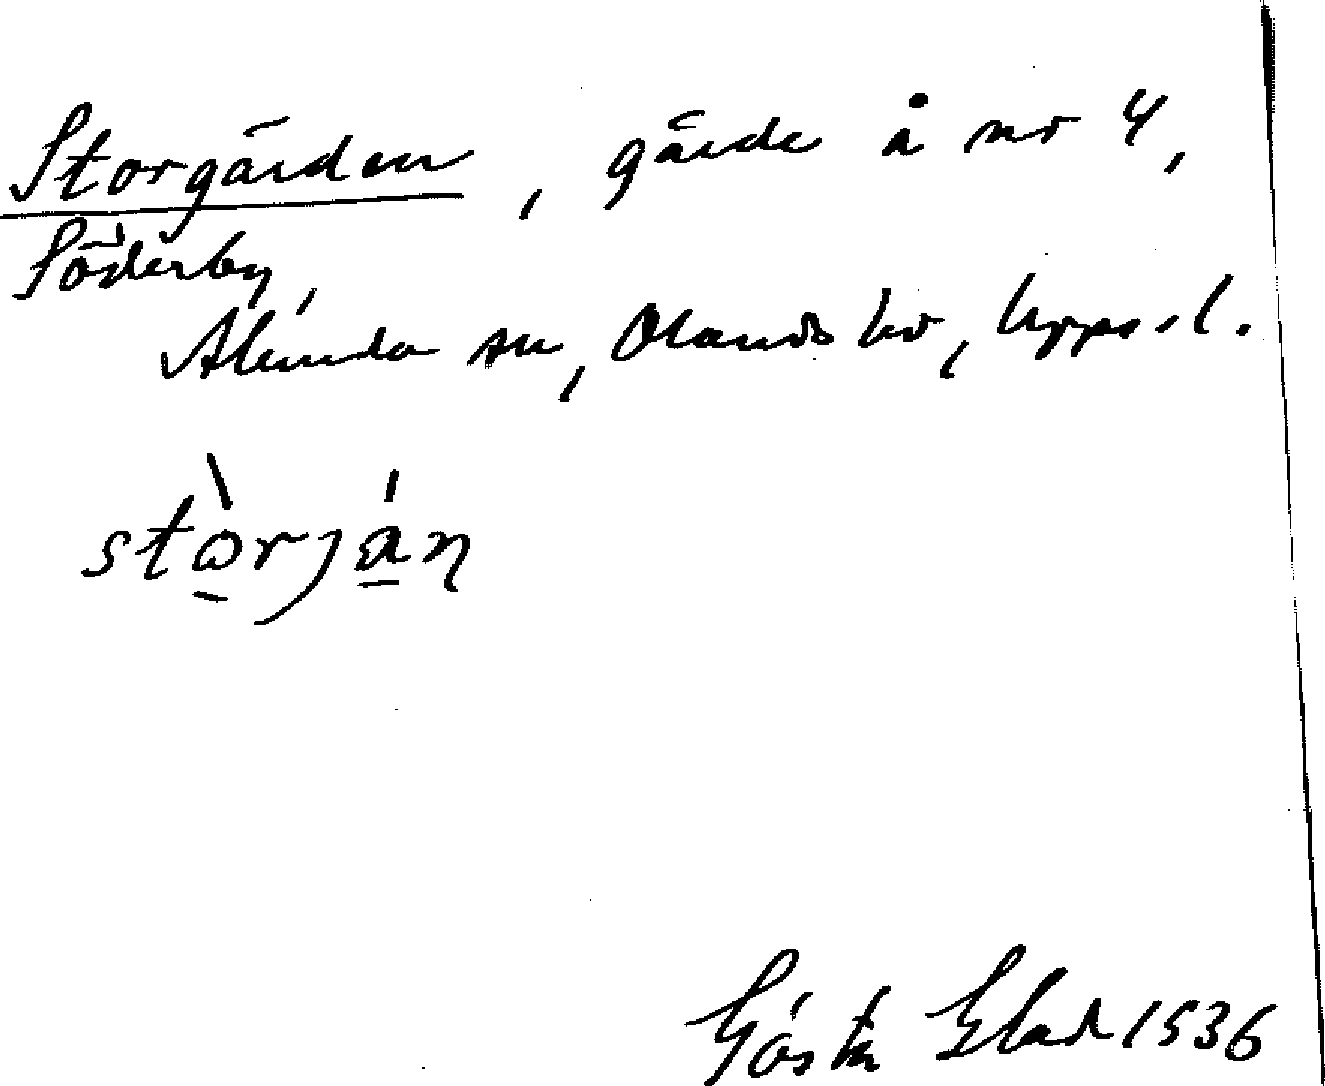 Storgärden, gärde å nr 4,
Söderby,
Alunda sn, Olands hd, Upps. l.
stòrján
Gösta Elad 1936